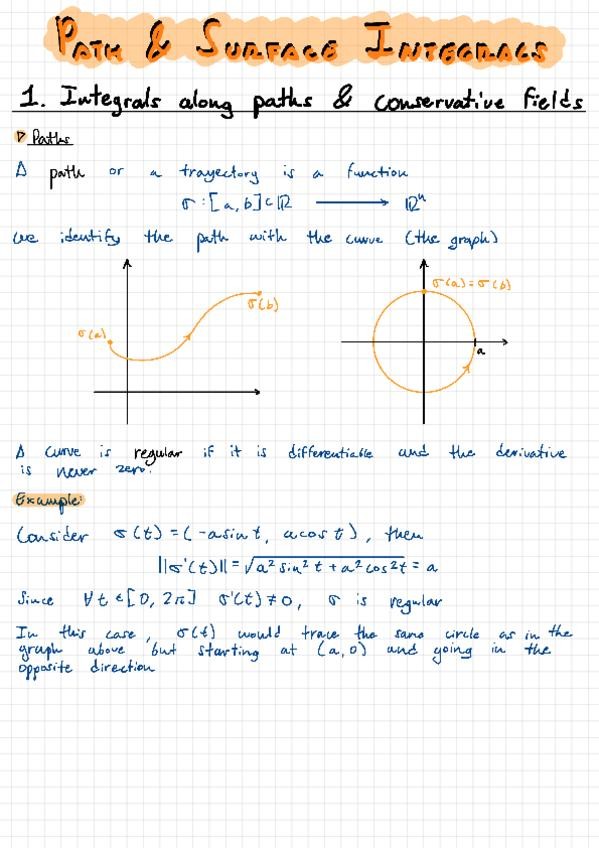 PATH & SURFACE INTEGRALS
1. Integrals along paths & conservative fields
▷ Paths
A path or a trayectory is a function
σ : [a, b] ⊂ ℝ ⟶ ℝⁿ
we identify the path with the curve (the graph)
σ(a)
σ(b)
σ(a) = σ(b)
a
A curve is regular if it is differentiable and the derivative
is never zero.
Example:
Consider σ(t) = (-a sin t, a cos t), then
||σ'(t)|| = √(a² sin² t + a² cos² t) = a
Since ∀t ∈ [0, 2π] σ'(t) ≠ 0, σ is regular
In this case, σ(t) would trace the same circle as in the
graph above but starting at (a, 0) and going in the
opposite direction